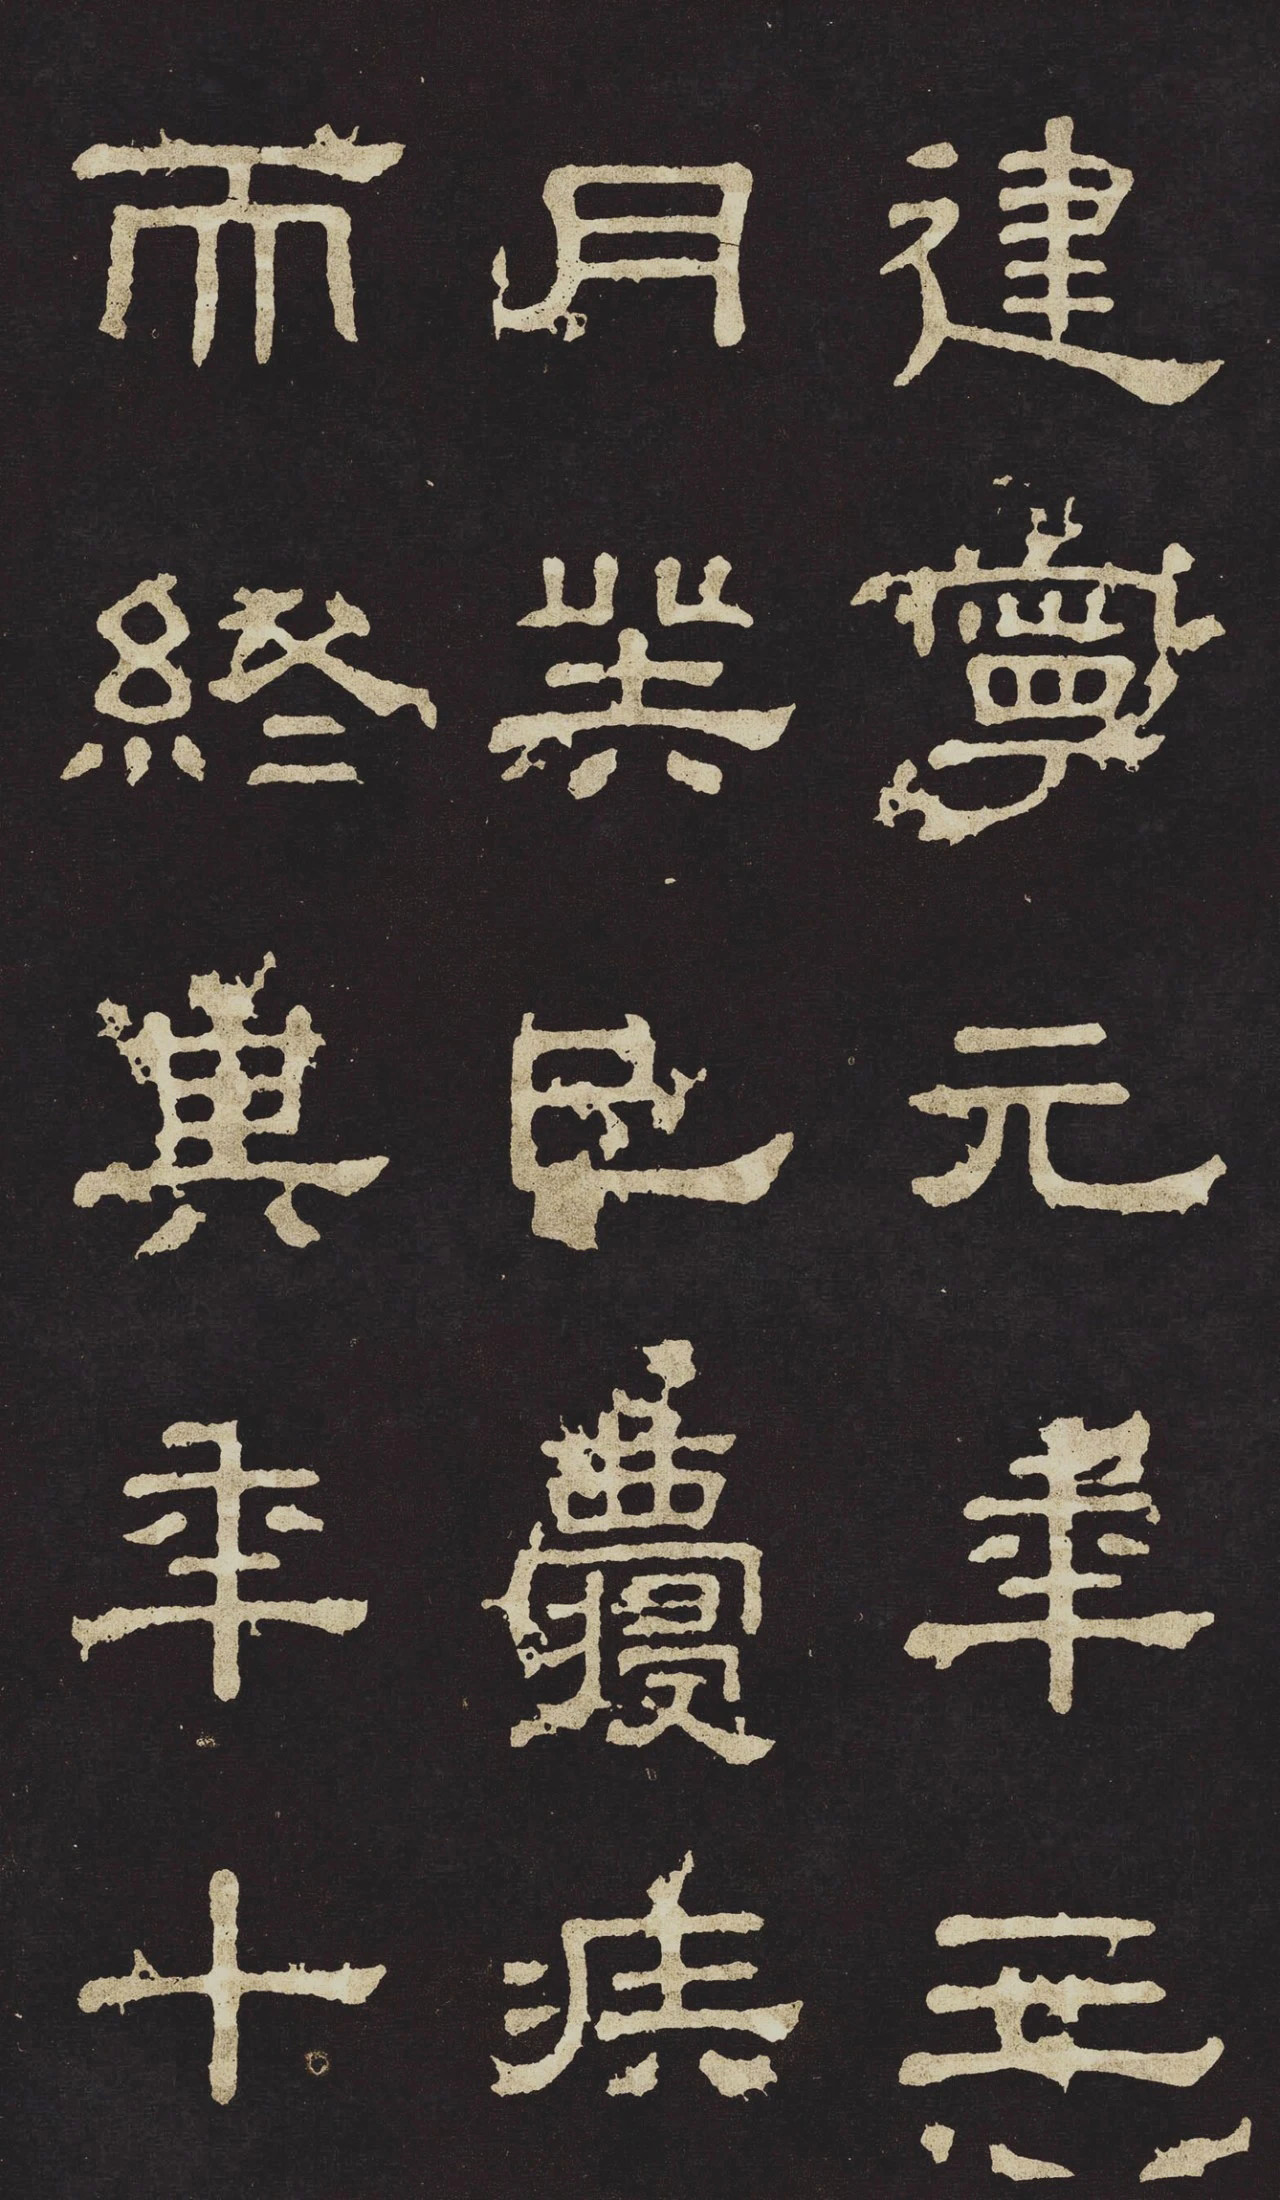 建寧元年三
月癸巳寢疾
而終其年十